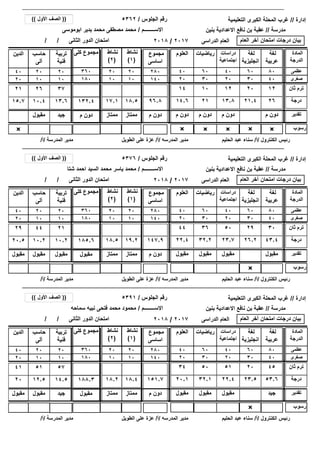 إدارة // غرب المحلة الكبرى التعليمية
رقم الجلوس / ٥٣٦٢
(( الصف الأول ))
مدرسة // عقبة بن نافع الاعدادية بنين
الاســـــــم / محمد مصطفى محمد بدير ابوموسى
بيان درجات امتحان أخر العام
العام الدراسى ٢٠١٧ / ٢٠١٨
امتحان الدور الثانى / /
المادة الدرجة
لغة عربية
لغة انجليزية
دراسات اجتماعية
رياضيات
العلوم
مجموع اساسى
نشاط (١)
نشاط (٢)
مجموع كلى
تربية فنية
حاسب آلى
الدين
عظمى ٨٠ ٦٠ ٤٠ ٦٠ ٤٠ ٢٨٠ ٢٠ ٢٠ ٣٦٠ ٢٠ ٢٠ ٤٠
صغرى ٤٠ ٣٠ ٢٠ ٣٠ ٢٠ ١٤٠ ١٠ ١٠ ١٨٠ ١٠ ١٠ ٢٠
ترم ثان
درجة ٢٦ ٢١,٤ ١٣,٨ ٢١ ١٤,٦ ٩٦,٨ ١٨,٥ ١٧,١ ١٣٢,٤ ١٣,٦ ١٠,٤ ١٥,٧
تقدير دون م دون م دون م دون م دون م دون م ممتاز ممتاز دون م جيد مقبول
رسوب × × × × × ×
رئيس الكنترول // سناء عبد الحليم
مدير المدرسة // عزة على الطويل
مدير المدرسة //
إدارة // غرب المحلة الكبرى التعليمية
رقم الجلوس / ٥٣٧٦
(( الصف الأول ))
مدرسة // عقبة بن نافع الاعدادية بنين
الاســـــــم / محمد ياسر محمد السيد احمد شتا
بيان درجات امتحان أخر العام
العام الدراسى ٢٠١٧ / ٢٠١٨
امتحان الدور الثانى / /
المادة الدرجة
لغة عربية
لغة انجليزية
دراسات اجتماعية
رياضيات
العلوم
مجموع اساسى
نشاط (١)
نشاط (٢)
مجموع كلى
تربية فنية
حاسب آلى
الدين
عظمى ٨٠ ٦٠ ٤٠ ٦٠ ٤٠ ٢٨٠ ٢٠ ٢٠ ٣٦٠ ٢٠ ٢٠ ٤٠
صغرى ٤٠ ٣٠ ٢٠ ٣٠ ٢٠ ١٤٠ ١٠ ١٠ ١٨٠ ١٠ ١٠ ٢٠
ترم ثان ٣٠ ٢٩ ٥٠ ٣٦ ٤٤ ٢١ ٤٤ ٢٩
درجة ٤٣,٤ ٢٦,٢ ٢٣,٧ ٣٢,٢ ٢٢,٤ ١٤٧,٩ ١٩,٢ ١٨,٥ ١٨٥,٦ ١٠,٢ ١٠,٢ ٢٠,٥
تقدير مقبول دون م مقبول مقبول مقبول مقبول ممتاز ممتاز مقبول مقبول مقبول مقبول
رسوب ×
رئيس الكنترول // سناء عبد الحليم
مدير المدرسة // عزة على الطويل
مدير المدرسة //
إدارة // غرب المحلة الكبرى التعليمية
رقم الجلوس / ٥٣٩١
(( الصف الأول ))
مدرسة // عقبة بن نافع الاعدادية بنين
الاســـــــم / محمود محمد فتحى نبيه سماحه
بيان درجات امتحان أخر العام
العام الدراسى ٢٠١٧ / ٢٠١٨
امتحان الدور الثانى / /
المادة الدرجة
لغة عربية
لغة انجليزية
دراسات اجتماعية
رياضيات
العلوم
مجموع اساسى
نشاط (١)
نشاط (٢)
مجموع كلى
تربية فنية
حاسب آلى
الدين
عظمى ٨٠ ٦٠ ٤٠ ٦٠ ٤٠ ٢٨٠ ٢٠ ٢٠ ٣٦٠ ٢٠ ٢٠ ٤٠
صغرى ٤٠ ٣٠ ٢٠ ٣٠ ٢٠ ١٤٠ ١٠ ١٠ ١٨٠ ١٠ ١٠ ٢٠
ترم ثان ٤٥ ٢٠ ٥١ ٥٠ ٣٤ ٥٧ ٥١ ٤١
درجة ٥٣,٦ ٢٣,٥ ٢٢,٤ ٣٢,١ ٢٠,١ ١٥١,٧ ١٨,٤ ١٨,٢ ١٨٨,٣ ١٤,٥ ١٢,٥ ٢٠
تقدير جيد مقبول مقبول مقبول دون م ممتاز ممتاز مقبول جيد مقبول مقبول
رسوب ×
رئيس الكنترول // سناء عبد الحليم
مدير المدرسة // عزة على الطويل
مدير المدرسة //